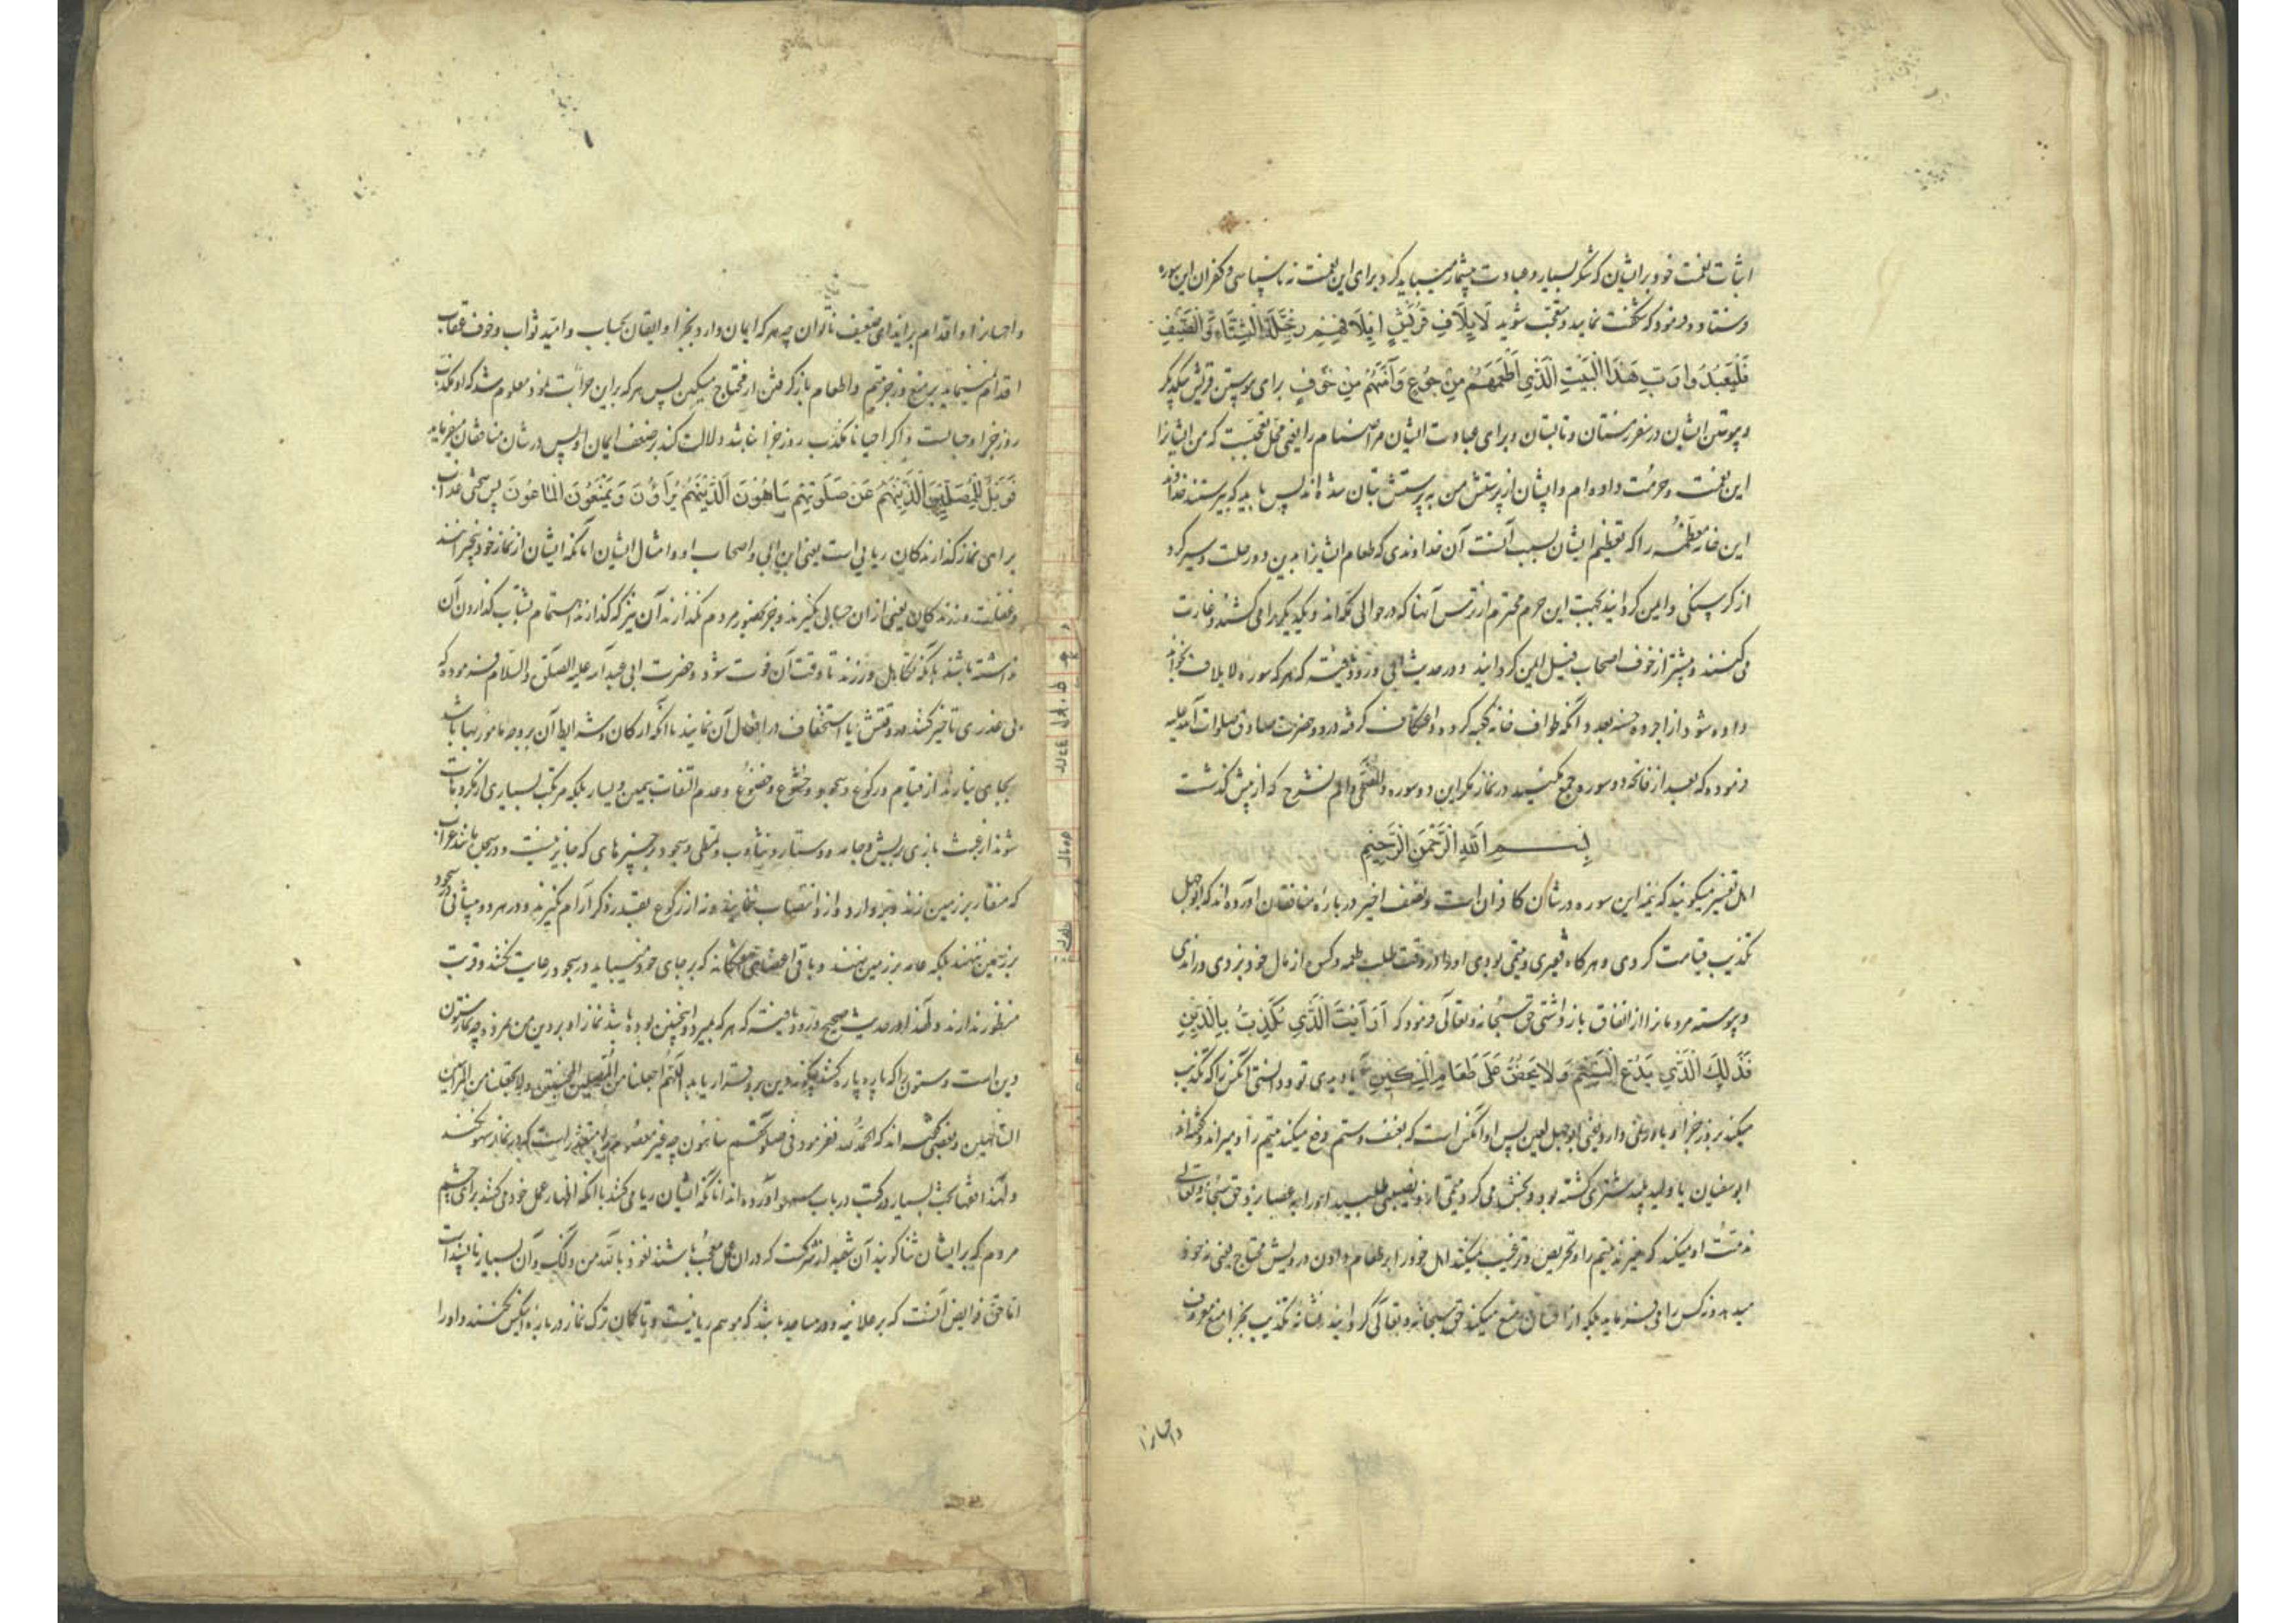 اثبات نعمت خود بر ایشان که شکر بسیار و عبادت بیشمار میباید کرد برای این نعمت نه ناسپاسی و کفران این سوره
فرستاد و فرمود که شگفت نمایید و متعجب شوید لَايِلَافِ قُرَيْشٍ اِيْلَافِهِمْ رِحْلَةَ الشِّتَاءِ وَالصَّيْفِ
فَلْيَعْبُدُوا رَبَّ هَذَا الْبَيْتِ الَّذِي اَطْعَمَهُمْ مِنْ جُوعٍ وَآمَنَهُمْ مِنْ خَوْفٍ برای پیوستن قریش بیکدیگر
و پیوستن ایشان در سفر زمستان و تابستان و برای عبادت ایشان مر اصنام را یعنی محل تعجبست که من ایشانرا
این نعمت و حرمت داده‌ام و ایشان از پرستش من به پرستش بتان شده‌اند پس باید که بپرستند خداوند
این خانه معظمه را که تعظیم ایشان بسبب آنست آن خداوندی که طعام داد ایشانرا بدین دو رحلت و سیر کرد
از گرسنگی و ایمن گردانید بجهت این حرم محترم از ترس آنها که در حوالی مکه‌اند و یکدیگر را می‌کشند و غارت
می‌کنند و پیشتر از خوف اصحاب فیل ایمن گردانید و در حدیث ابی ورود یافته که هر که سوره لایلاف بخواند
داده شود از اجر ده حسنه بعدد آنکه طواف خانه کعبه کرده و اعتکاف گرفته در و حضرت صادق صلوات الله علیه
فرموده که بعد از فاتحه دو سوره جمع مکنید در نماز مگر این دو سوره و الضحی و الم نشرح که از پیش گذشت
بِسْمِ اللهِ الرَّحْمَنِ الرَّحِيمِ
اهل تفسیر میگویند که نیمه این سوره در شان کافران است و نصف اخیر درباره منافقان آورده‌اند که ابوجهل
تکذیب قیامت کردی و هر گاه فقیری و یتیمی بودی او را در وقت طلب طعمه و کس از مال خود بزدی و راندی
و پیوسته مردمانرا از انفاق باز داشتی حق سبحانه و تعالی فرمود که اَرَاَيْتَ الَّذِي يُكَذِّبُ بِالدِّينِ
فَذَلِكَ الَّذِي يَدُعُّ الْيَتِيمَ وَلَا يَحُضُّ عَلَى طَعَامِ الْمِسْكِينِ آیا دیدی تو و دانستی آنکس را که تکذیب
میکند بروز جزا و باور نمی دارد یعنی ابوجهل لعین پس او آنکس است که بعنف و ستم دفع میکند یتیم را و میراند و گفته‌اند
ابوسفیان یا ولید پلید شتری کشته بود و بخش می کرد یتیمی از و نصیبی طلبید او را بعصا بزد حق سبحانه و تعالی
مذمت او میکند که میزند یتیم را و تحریص و ترغیب نمیکند اهل خود را بر طعام دادن درویش محتاج یعنی نه خود
میدهد و نه کس را می فرماید بلکه از احسان منع میکند حق سبحانه و تعالی گردانید نشانه تکذیب بجزا منع معروف
و احسانرا
و احسانرا و اقدام بر ایذای ضعیف ناتوان چه هر که ایمان دارد بجزا و ایقان بحساب و امید ثواب و خوف عقاب
اقدام نمینماید بر منع و زجر یتیم و اطعام باز گرفتن از محتاج مسکین پس هر که بر این جرأت نمود معلوم شد که او مکذب
روز جزا و حسابست و اگر احیانا مکذب روز جزا نباشد دلالت کند بر ضعف ایمان او پس در شان منافقان میفرماید
فَوَيْلٌ لِلْمُصَلِّينَ الَّذِينَ هُمْ عَنْ صَلَوتِهِمْ سَاهُونَ الَّذِينَ هُمْ يُرَاؤُنَ وَيَمْنَعُونَ الْمَاعُونَ پس سختی عذاب
برای نماز گذارندگان ریایی است یعنی ابن ابی و اصحاب او و امثال ایشان آنانکه ایشان از نماز خود بیخبرانند
و غفلت ورزندگان یعنی از آن حسابی نگیرند و جز بحضور مردم نگذارند آن نیز که گذارند اهتمام بشتاب گذاردن آن
نداشته باشند بلکه تکاهل ورزند تا وقت آن فوت شود و حضرت ابی عبدالله علیه الصلوة و السلام فرموده که
بی عذری تاخیر کنند در وقتش یا استخفاف در افعال آن نمایند یا آنکه ارکان و شرایط آن بر وجه مامور بها باشد
بجای نیارند از قیام و رکوع و سجود و خشوع و خضوع و عدم التفات بیمین و یسار بلکه مرتکب بسیاری از مکروهات
شوند از عبث بازی بریش و جامه و دستار و تثاوب و تمطی و سجود بر چیزهای که جایز نیست و در سجده مانند غراب
که منقار بر زمین زند و بردارد و از انتصاب ننمایند و نه از رکوع بقدر ذکر آرام نگیرند و در هر دو پیشانی در سجود
بر زمین ننهند بلکه عمامه بر زمین نهند و باقی اعضای هفتگانه که بر جای خود نمیباید در سجود رعایت نکنند و قربت
منظور ندارند و لهذا در حدیث صحیح ورود یافته که هر که بمیرد و اینچنین بوده باشد نماز او بر دین من نمرد چه نماز ستون
دین است و ستون را که پاره پاره کنند چگونه دین برو قرار یابد اللهم اجعلنا من المصلین المخبتین و لا تجعلنا من المرائین
الساهلین و بعضی گفته‌اند که الحمد لله نفرمود فی صلوتهم ساهون چه غیر معصوم را متعذر است که در نماز سهو نکنند
و لهذا فقها بحث بسیار در کتب در باب سهو آورده‌اند آنانکه ایشان ریا می‌کنند یا آنکه اظهار عمل خود می‌کنند برای چشم
مردم که بر ایشان ثنا گویند آن شعبه از شرکست که در آن عمل معجب باشند نعوذ بالله من ذلک و آن بسیار ناپسند است
اما حق فرایض آنست که بر علانیه و در مساجد باشد که موسم ریا نیست و تا گمان ترک نماز درباره ایکس نکنند و او را